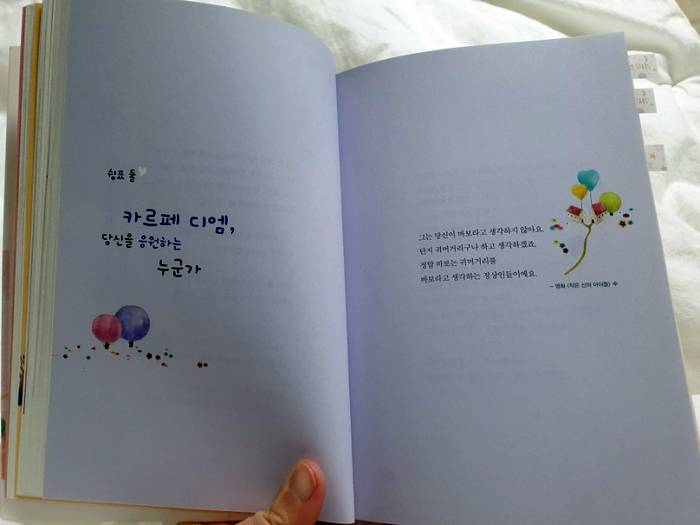 쉼표 둘
카르페 디엠,
당신을 응원하는
누군가
그는 당신이 바보라고 생각하지 않아요.
단지 귀머거리구나 하고 생각하겠죠.
정말 바보는 귀머거리를
바보라고 생각하는 정상인들이에요.
- 영화 〈작은 신의 아이들〉 中